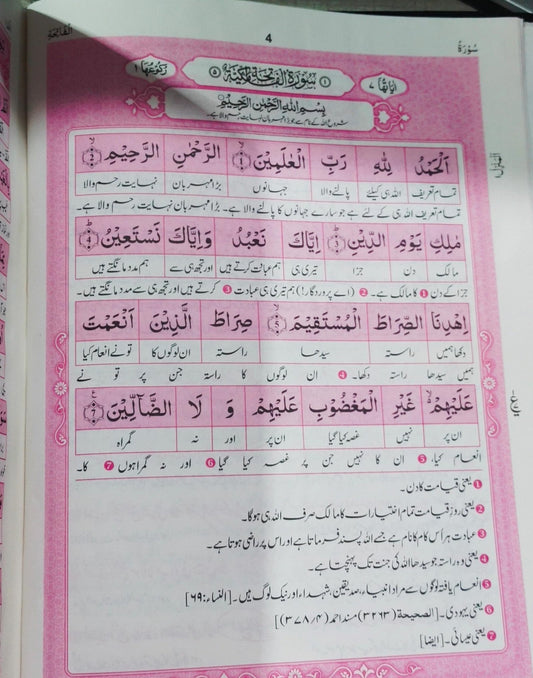 الْفَاتِحَة
4
سُوْرَةُ
اٰیَاتُهَا ۷
﴿۱﴾ سُوْرَةُ الْفَاتِحَةِ مَكِّيَّةٌ ﴿۵﴾
رُكُوْعُهَا ۱
بِسْمِ اللهِ الرَّحْمٰنِ الرَّحِيْمِ
شروع اللہ کے نام سے جو بڑا مہربان نہایت رحم والا ہے۔
اَلْحَمْدُ لِلّٰهِ رَبِّ الْعٰلَمِيْنَ ﴿۱﴾ الرَّحْمٰنِ الرَّحِيْمِ ﴿۲﴾
تمام تعریف اللہ ہی کیلئے پالنے والا جہانوں بڑا مہربان نہایت رحم والا
تمام تعریف اللہ ہی کے لئے ہے جو سارے جہانوں کا پالنے والا ہے۔ بڑا مہربان نہایت رحم والا ہے۔
مٰلِكِ يَوْمِ الدِّيْنِ ﴿۳﴾ اِيَّاكَ نَعْبُدُ وَاِيَّاكَ نَسْتَعِيْنُ ﴿۴﴾
مالک دن جزا تیری ہی ہم عبادت کرتے ہیں اور تجھ ہی سے ہم مدد مانگتے ہیں
جزا کے دن ❶ کا مالک ہے۔ ❷ (اے پروردگار!) ہم تیری ہی عبادت ❸ کرتے ہیں اور تجھ ہی سے مدد مانگتے ہیں۔
اِهْدِنَا الصِّرَاطَ الْمُسْتَقِيْمَ ﴿۵﴾ صِرَاطَ الَّذِيْنَ اَنْعَمْتَ
دکھا ہمیں راستہ سیدھا راستہ ان لوگوں کا تو نے انعام کیا
ہمیں سیدھا راستہ دکھا۔ ❹ ان لوگوں کا راستہ جن پر تو نے
عَلَيْهِمْ ﴿۶﴾ غَيْرِ الْمَغْضُوْبِ عَلَيْهِمْ وَ لَا الضَّآلِّيْنَ ﴿۷﴾
ان پر نہیں غصہ کیا گیا ان پر اور نہ گمراہ
انعام کیا، ❺ ان کا نہیں جن پر غصہ کیا گیا ❻ اور نہ گمراہوں ❼ کا۔
❶ یعنی قیامت کا دن۔
❷ یعنی روزِ قیامت تمام اختیارات کا مالک صرف اللہ ہی ہوگا۔
❸ عبادت ہر اُس کام کا نام ہے جسے اللہ پسند فرماتا ہے اور اس پر راضی ہوتا ہے۔
❹ یعنی وہ راستہ جو سیدھا اللہ کی جنت تک پہنچتا ہے۔
❺ انعام یافتہ لوگوں سے مراد انبیاء، صدیقین، شہداء، اور نیک لوگ ہیں۔ [النساء:۶۹]
❻ یعنی یہودی۔ [الصحیحة (۳۲۶۳) مسند احمد (۴/ ۳۷۸)]
❼ یعنی عیسائی۔ [ایضا]